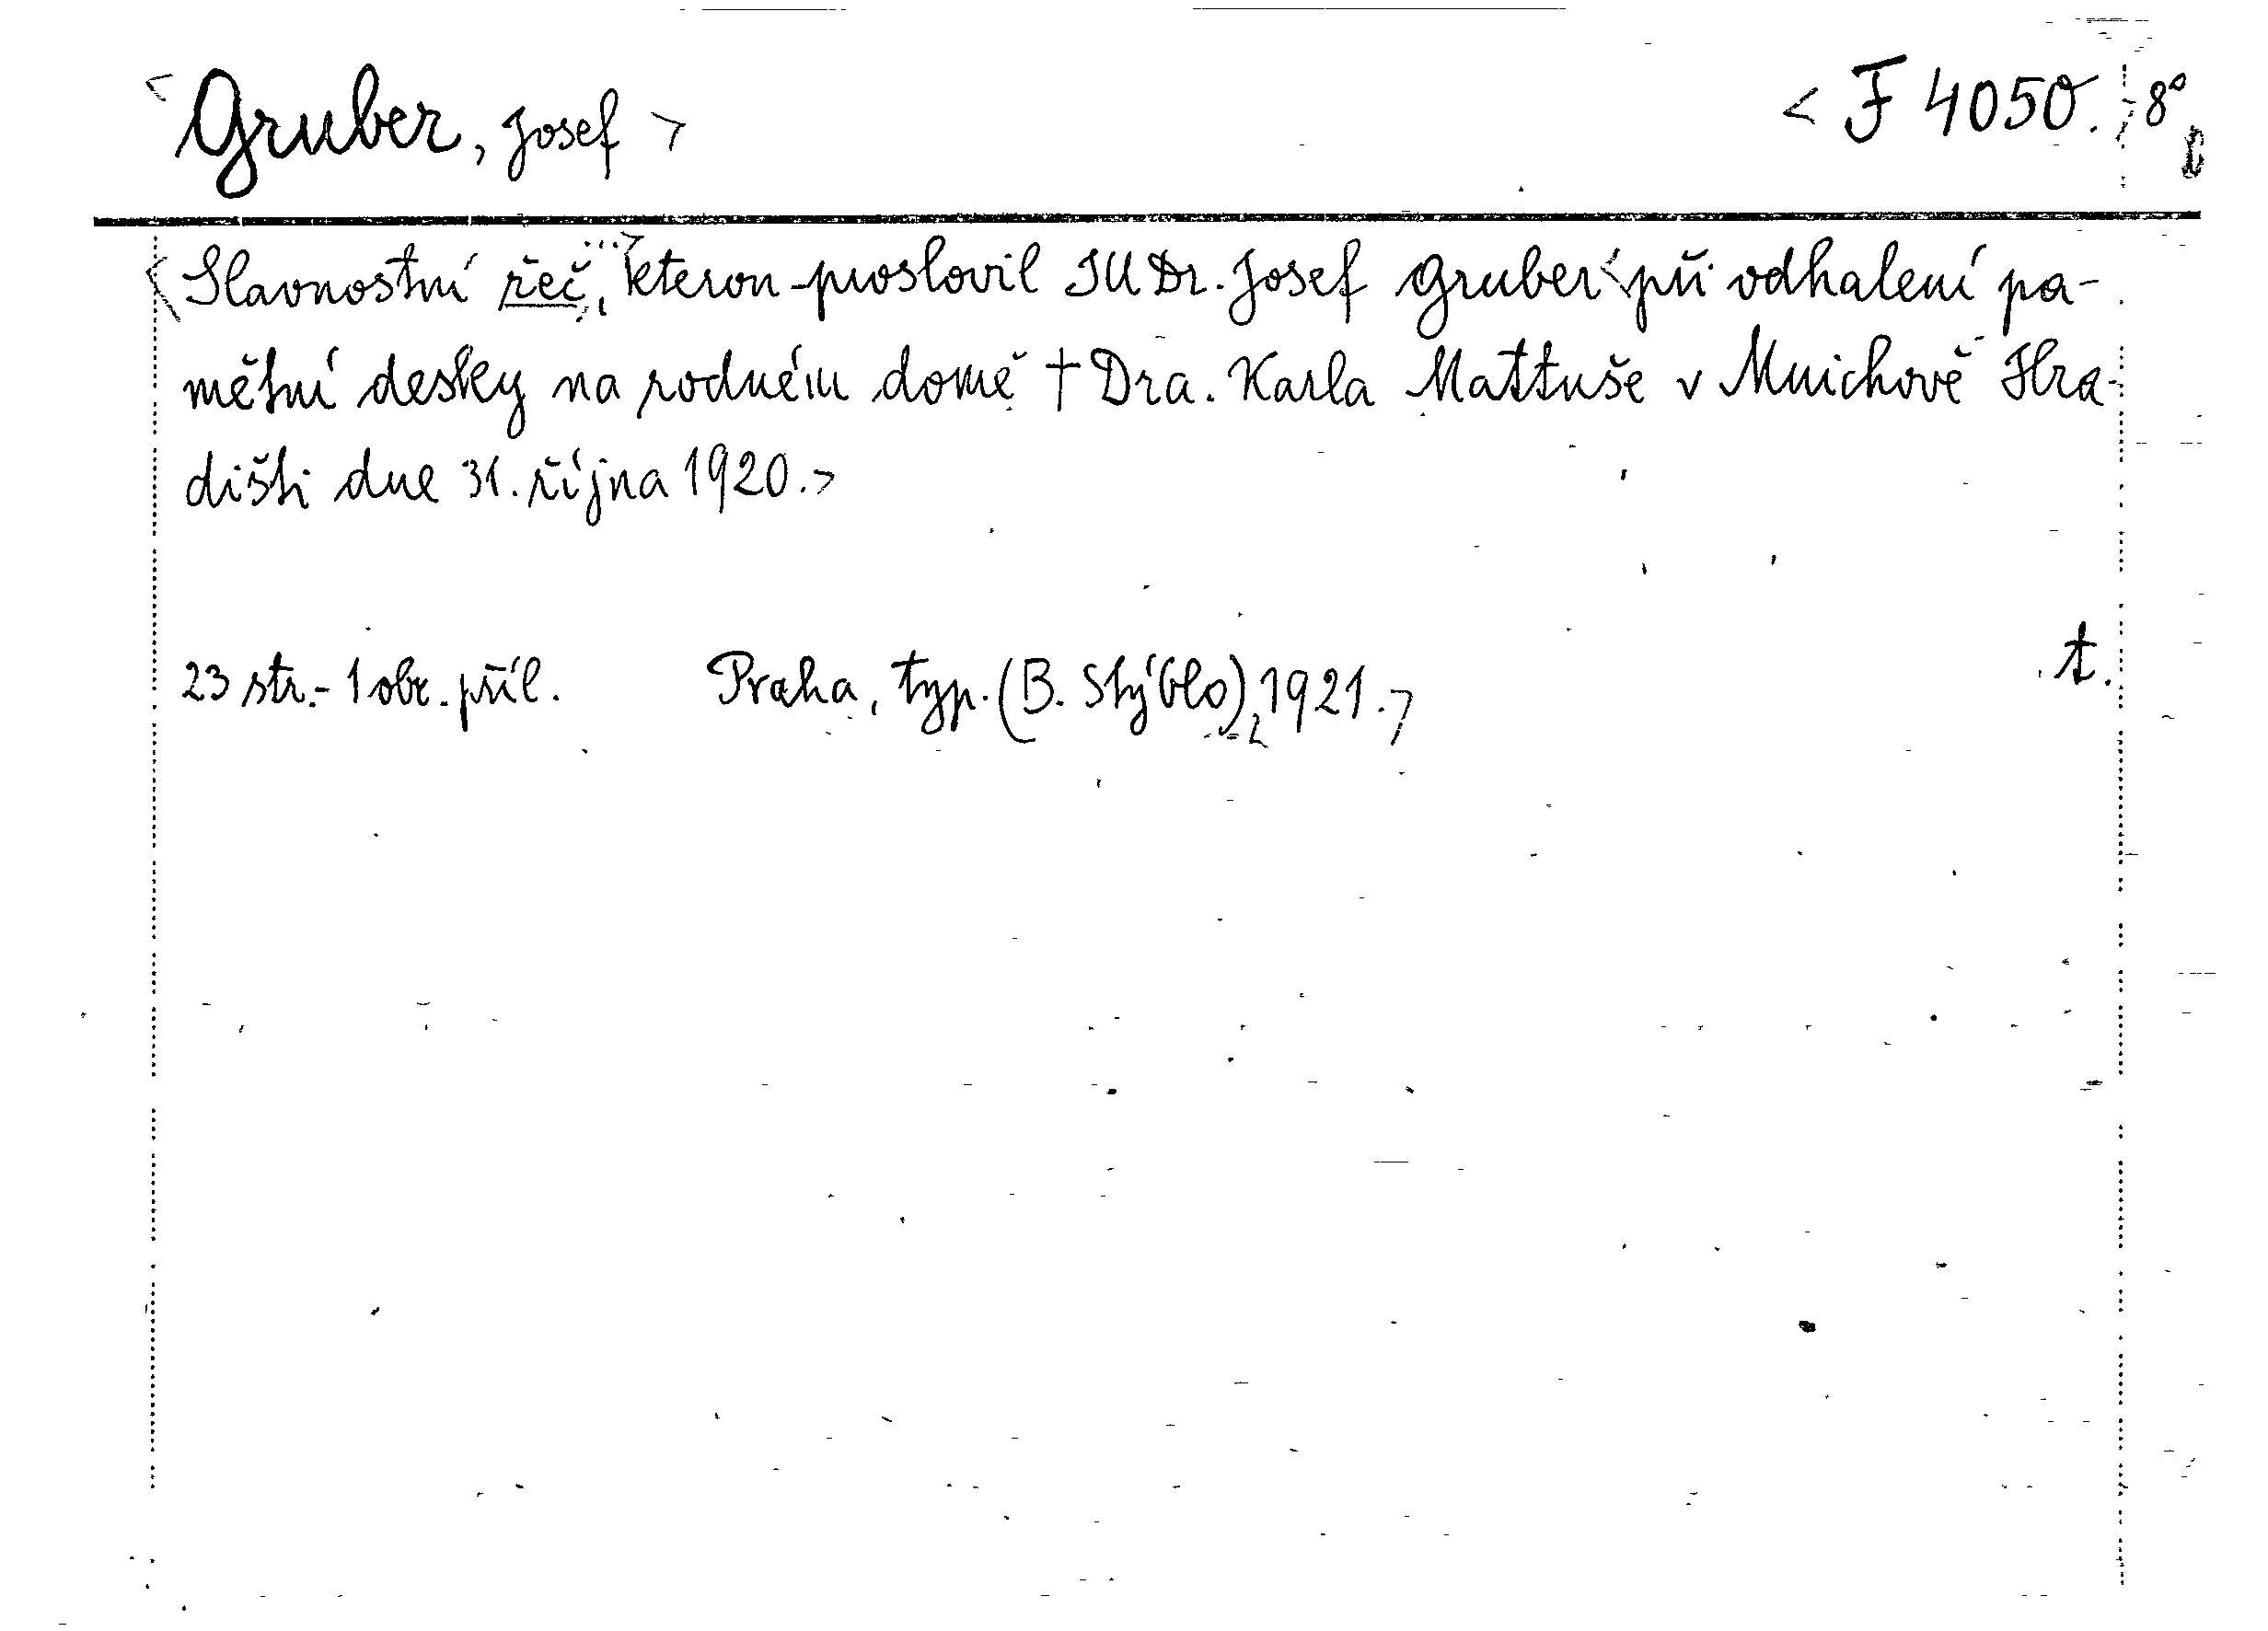 <Gruber, Josef> <F 4050.> 8°
<Slavnostní řeč,...> kterou proslovil JUDr. Josef Gruber <při odhalení pa-
mětní desky na rodném domě † Dra. Karla Mattuše v Mnichově Hra-
dišti dne 31. října 1920.>
23 str.- 1 obr. příl. Praha, typ. (B. Stýblo), 1921.> t.